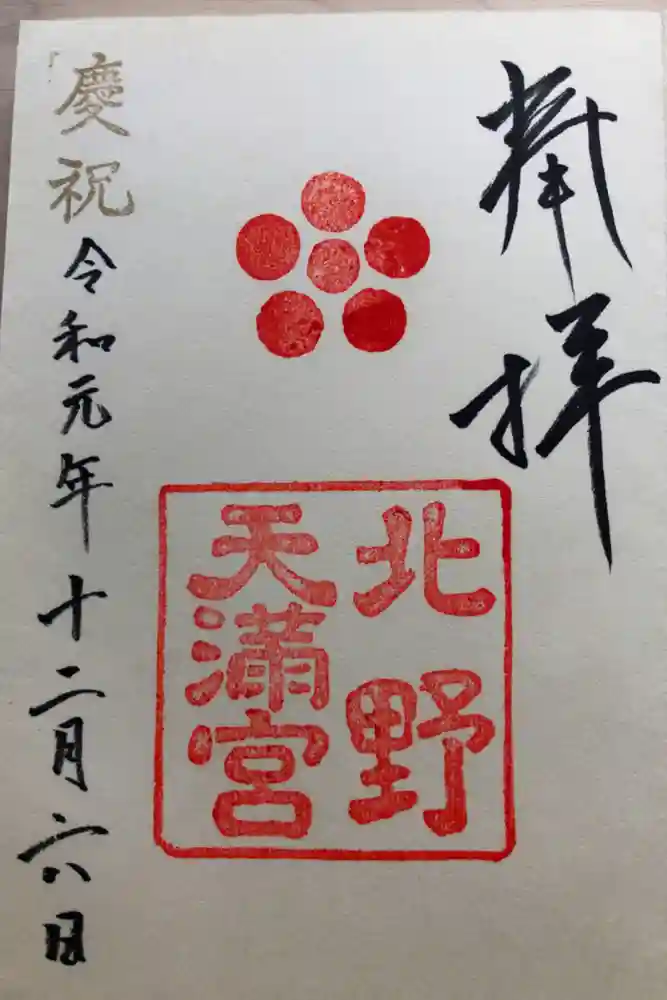 奉拝
北野
天満宮
慶祝
令和元年十二月六日